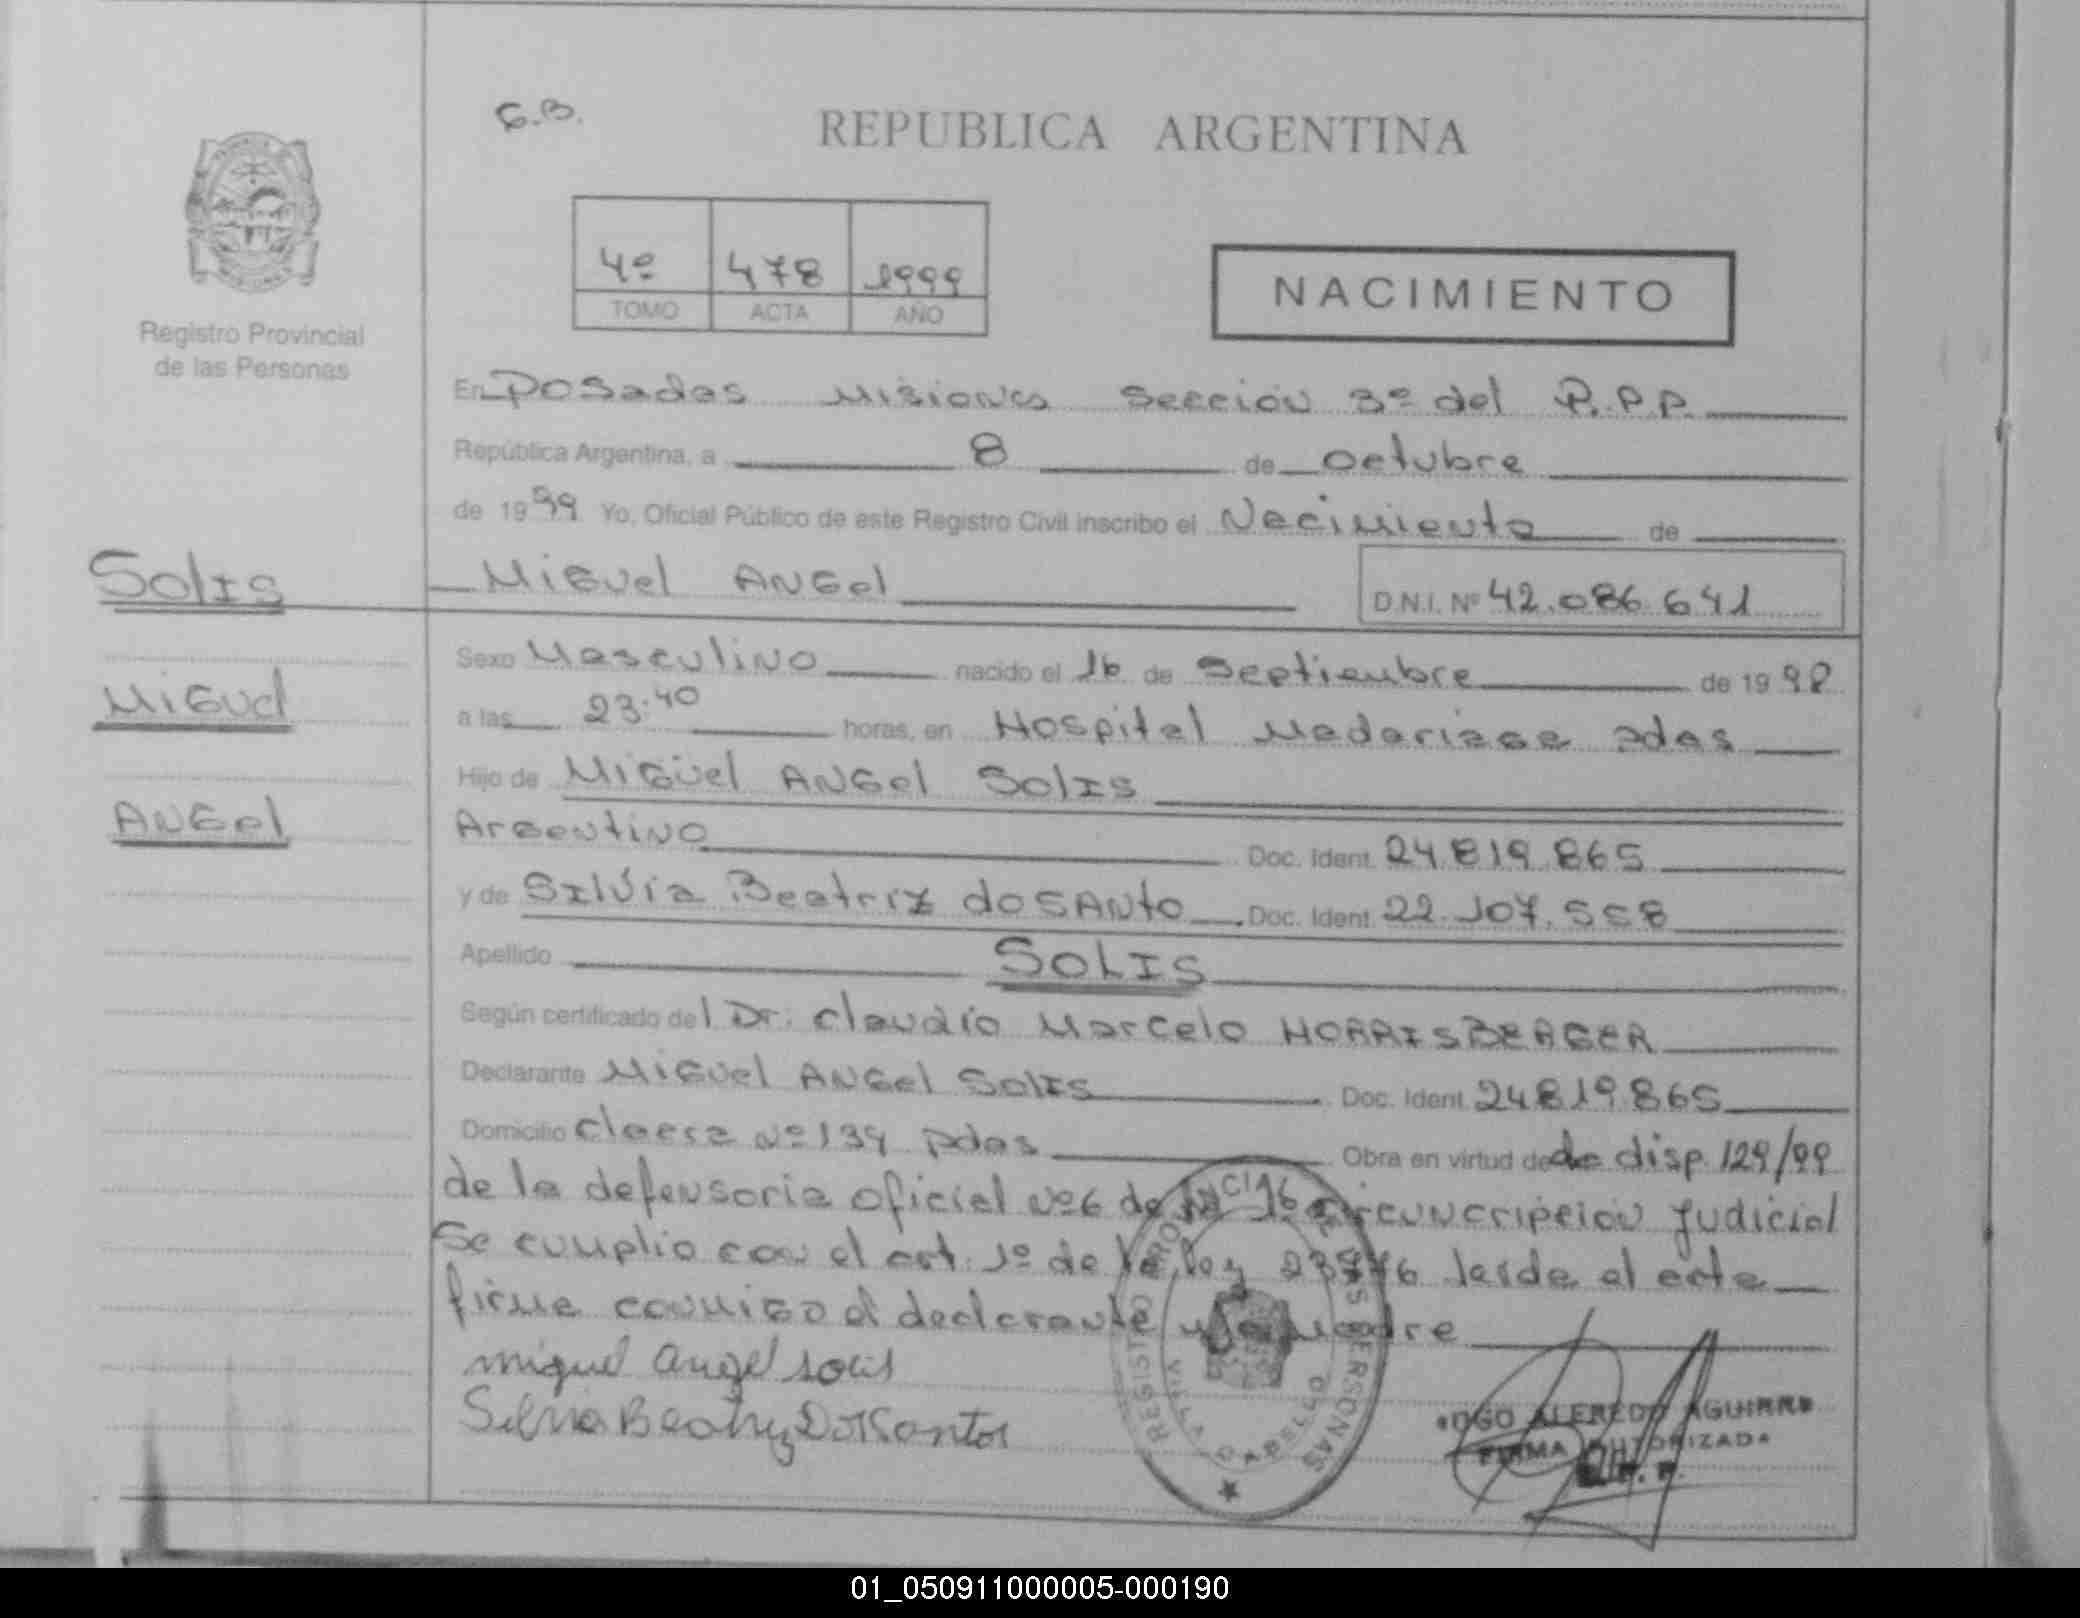 G.B.
REPUBLICA ARGENTINA
4º 478 1999
TOMO ACTA AÑO
NACIMIENTO
Registro Provincial
de las Personas
En Posadas Misiones Sección 3º del R.P.P.
República Argentina, a 8 de octubre
de 1999 Yo, Oficial Público de este Registro Civil inscribo el Nacimiento de
Solis
Miguel Angel D.N.I. Nº 42.086.641
Sexo Masculino nacido el 16 de Septiembre de 1998
Miguel
a las 23:40 horas, en Hospital Madariaga pdas
Hijo de Miguel Angel Solis
Angel
Argentino Doc. Ident. 24.819.865
y de Silvia Beatriz dosanto Doc. Ident. 22.107.558
Apellido SOLIS
Según certificado del Dr. Claudio Marcelo HORRISBERGER
Declarante Miguel Angel Solis Doc. Ident. 24819865
Domicilio Nº 139 pdas Obra en virtud de de disp. 129/99
de la defensoria oficial Nº6 de la 1º circuncripcion Judicial
Se cumplio con el art. 1º de la ley leida el acta
firma conmigo el declarante y la madre
miguel angel solis
Silvia Beatriz Dos Santos
REGISTRO PROVINCIAL DE LAS PERSONAS
VILLA CABELLO
HUGO ALFREDO AGUIRRE
FIRMA AUTORIZADA
R.P.P.
01_050911000005-000190